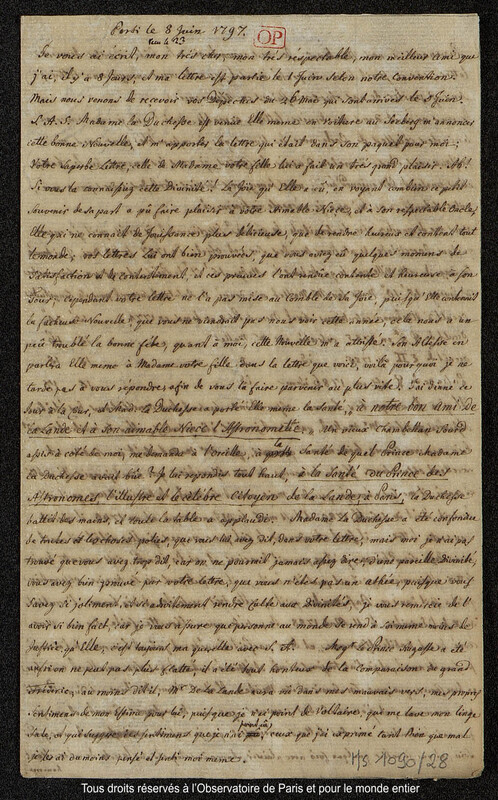 Parti le 8 Juin 1797.
OP
Je vous ai écrit, mon très cher, mon très réspectable, mon meilleur ami que
j'ai, il y a 8 Jours, et ma lettre est partie le 1 Juin selon notre Convention.
Mais nous venons de recevoir vos Dépeches du 26 Mai qui sont arrivés le 5 Juin.
S. A. S. Madame la Duchesse est venue Elle meme en voiture au Seeberg m'annoncer
cette bonne Nouvelle, et m'apporter la lettre qui était dans son paquet pour moi;
Votre superbe Lettre, celle de Madame votre fille lui a fait un très grand plaisir. Ah!
Si vous la connaissiez cette Divinité! La Joie qu'Elle a eu, en voyant combien ce petit
Souvenir de sa part a pû faire plaisir à votre aimable Niece, et à son respectable Oncle,
Elle qui ne connait de Jouissances plus délicieuse, que de rendre heureux et content tout
le monde; vos lettres Lui ont bien prouvées, que vous avez eu quelques momens de
Satisfaction et de contentement, et ces preuves l'ont rendue contente et heureuse à son
tour; cependant votre lettre ne l'a pas mise au comble de la Joie, puisqu'elle contenoit
la facheuse Nouvelle, que vous ne viendrait pas nous voir cette année, cela nous a un
peu troublé la bonne fête, quant à moi, cette Nouvelle m'a attristé. Son Altesse en
parlera Elle meme à Madame votre fille dans la lettre que voici, voilà pourquoi je ne
tarde pas à vous répondre, afin de vous la faire parvenir au plus vîte. J'ai diné ce
Jour à la Cour, et Madame la Duchesse a porté Elle meme la Santé, à notre bon ami De
La Lande et à son aimable Niece l'Astronomette. Un vieux Chambellan Sourd
assis à coté de moi, me demande à l'oreille, la Santé de quel Prince Madame
la Duchesse avait bûe? Je lui repondis tout haut, à la Santé du Prince des
Astronomes l'illustre et le célebre Citoyen de la Lande, à Paris, la Duchesse
battit des mains, et toute la table a applaudi. Madame la Duchesse a été confondue
de toutes les choses polies, que vous lui avez dit, dans votre lettre, mais moi je n'ai pas
trouvé que vous avez trop dit, car on ne pourrait jamais assez dire, d'une pareille Divinité,
vous avez bien prouvé par votre lettre, que vous n'etes pas un athée, puisque vous
savez si joliment, et si adroitement rendre Culte aux Divinités, je vous remercie de l'
avoir si bien fait, car je vous assure que personne au monde se rend à soi meme moins de
Justice qu'Elle; c'est toujours ma querelle avec S. A. Msgr. le Prince Auguste a été
aussi on ne peut pas plus flatté, il a été tout honteux de la Comparaison du grand
Frédéric, au moins dit-il, Mr. De la Lande n'aura vû dans mes mauvais vers, mes propres
sentimens de mon Estime pour lui, puisque je n'ai point de Voltaire, qui me lave mon linge
Sale, ni que Suppose des sentimens que je n'ai ; ceux que j'ai exprimé tant bien que mal
je les ai du moins pensé et senti moi meme.
Ms 1090/28
Tous droits réservés à l'Observatoire de Paris et pour le monde entier